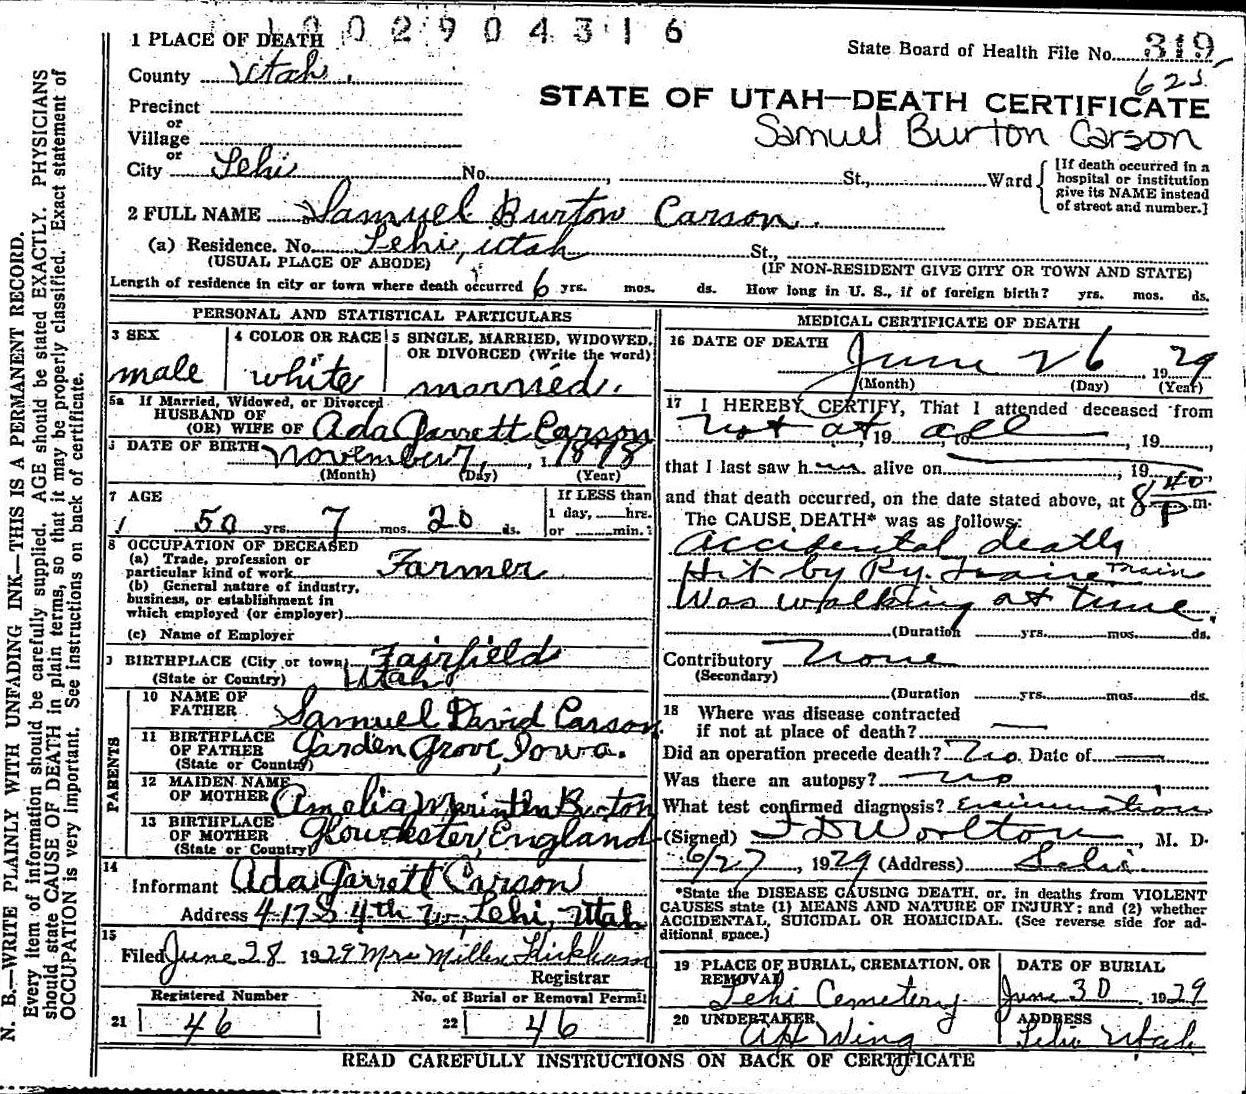 1002904316
State Board of Health File No. 319
625
STATE OF UTAH—DEATH CERTIFICATE
Samuel Burton Carson
1 PLACE OF DEATH
County Utah.
Precinct
or
Village
or
City Lehi No. , St., Ward
[If death occurred in a
hospital or institution
give its NAME instead
of street and number.]
2 FULL NAME Samuel Burton Carson.
(a) Residence. No. Lehi, Utah St.,
(USUAL PLACE OF ABODE) (IF NON-RESIDENT GIVE CITY OR TOWN AND STATE)
Length of residence in city or town where death occurred 6 yrs. mos. ds. How long in U. S., if of foreign birth? yrs. mos. ds.
PERSONAL AND STATISTICAL PARTICULARS
3 SEX
male
4 COLOR OR RACE
white
5 SINGLE, MARRIED, WIDOWED,
OR DIVORCED (Write the word)
married.
5a If Married, Widowed, or Divorced
HUSBAND OF
(OR) WIFE OF Ada Garrett Carson
DATE OF BIRTH November 7, 1878
(Month) (Day) (Year)
7 AGE
50 yrs. 7 mos. 20 ds.
If LESS than
1 day, hrs.
or min.?
8 OCCUPATION OF DECEASED
(a) Trade, profession or
particular kind of work Farmer
(b) General nature of industry,
business, or establishment in
which employed (or employer)
(c) Name of Employer
BIRTHPLACE (City or town) Fairfield
(State or Country) Utah
PARENTS
10 NAME OF
FATHER Samuel David Carson
11 BIRTHPLACE
OF FATHER Garden Grove, Iowa.
(State or Country)
12 MAIDEN NAME
OF MOTHER Amelia Marintha Burton
13 BIRTHPLACE
OF MOTHER Gloucester, England
(State or Country)
14
Informant Ada Garrett Carson
Address 417 S 4th W, Lehi, Utah
15
Filed June 28 1929 Mrs
Registrar
Registered Number
21 46
No. of Burial or Removal Permit
22 46
MEDICAL CERTIFICATE OF DEATH
16 DATE OF DEATH
June 26, 1929
(Month) (Day) (Year)
17 I HEREBY CERTIFY, That I attended deceased from
Not at 19 all to , 19
that I last saw h alive on , 19
and that death occurred, on the date stated above, at 8 40 P m.
The CAUSE DEATH* was as follows:
Accidental death
Hit by Ry. Train Train
Was walking at time.
(Duration yrs. mos. ds.
Contributory None
(Secondary)
(Duration yrs. mos. ds.
18 Where was disease contracted
if not at place of death?
Did an operation precede death? No. Date of
Was there an autopsy? no
What test confirmed diagnosis? Examination
(Signed) , M. D.
6/27, 1929 (Address) Lehi.
*State the DISEASE CAUSING DEATH, or, in deaths from VIOLENT
CAUSES state (1) MEANS AND NATURE OF INJURY; and (2) whether
ACCIDENTAL, SUICIDAL OR HOMICIDAL. (See reverse side for ad-
ditional space.)
19 PLACE OF BURIAL, CREMATION, OR
REMOVAL
Lehi Cemetery
DATE OF BURIAL
June 30, 1929
20 UNDERTAKER
AH Wing
ADDRESS
Lehi Utah
READ CAREFULLY INSTRUCTIONS ON BACK OF CERTIFICATE
N. B.—WRITE PLAINLY WITH UNFADING INK—THIS IS A PERMANENT RECORD.
Every item of information should be carefully supplied. AGE should be stated EXACTLY. PHYSICIANS
should state CAUSE OF DEATH in plain terms, so that it may be properly classified. Exact statement of
OCCUPATION is very important. See instructions on back of certificate.